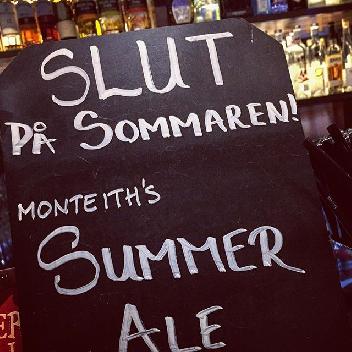 SLUT
PÅ SOMMAREN!
MONTEITH'S
SUMMER
ALE